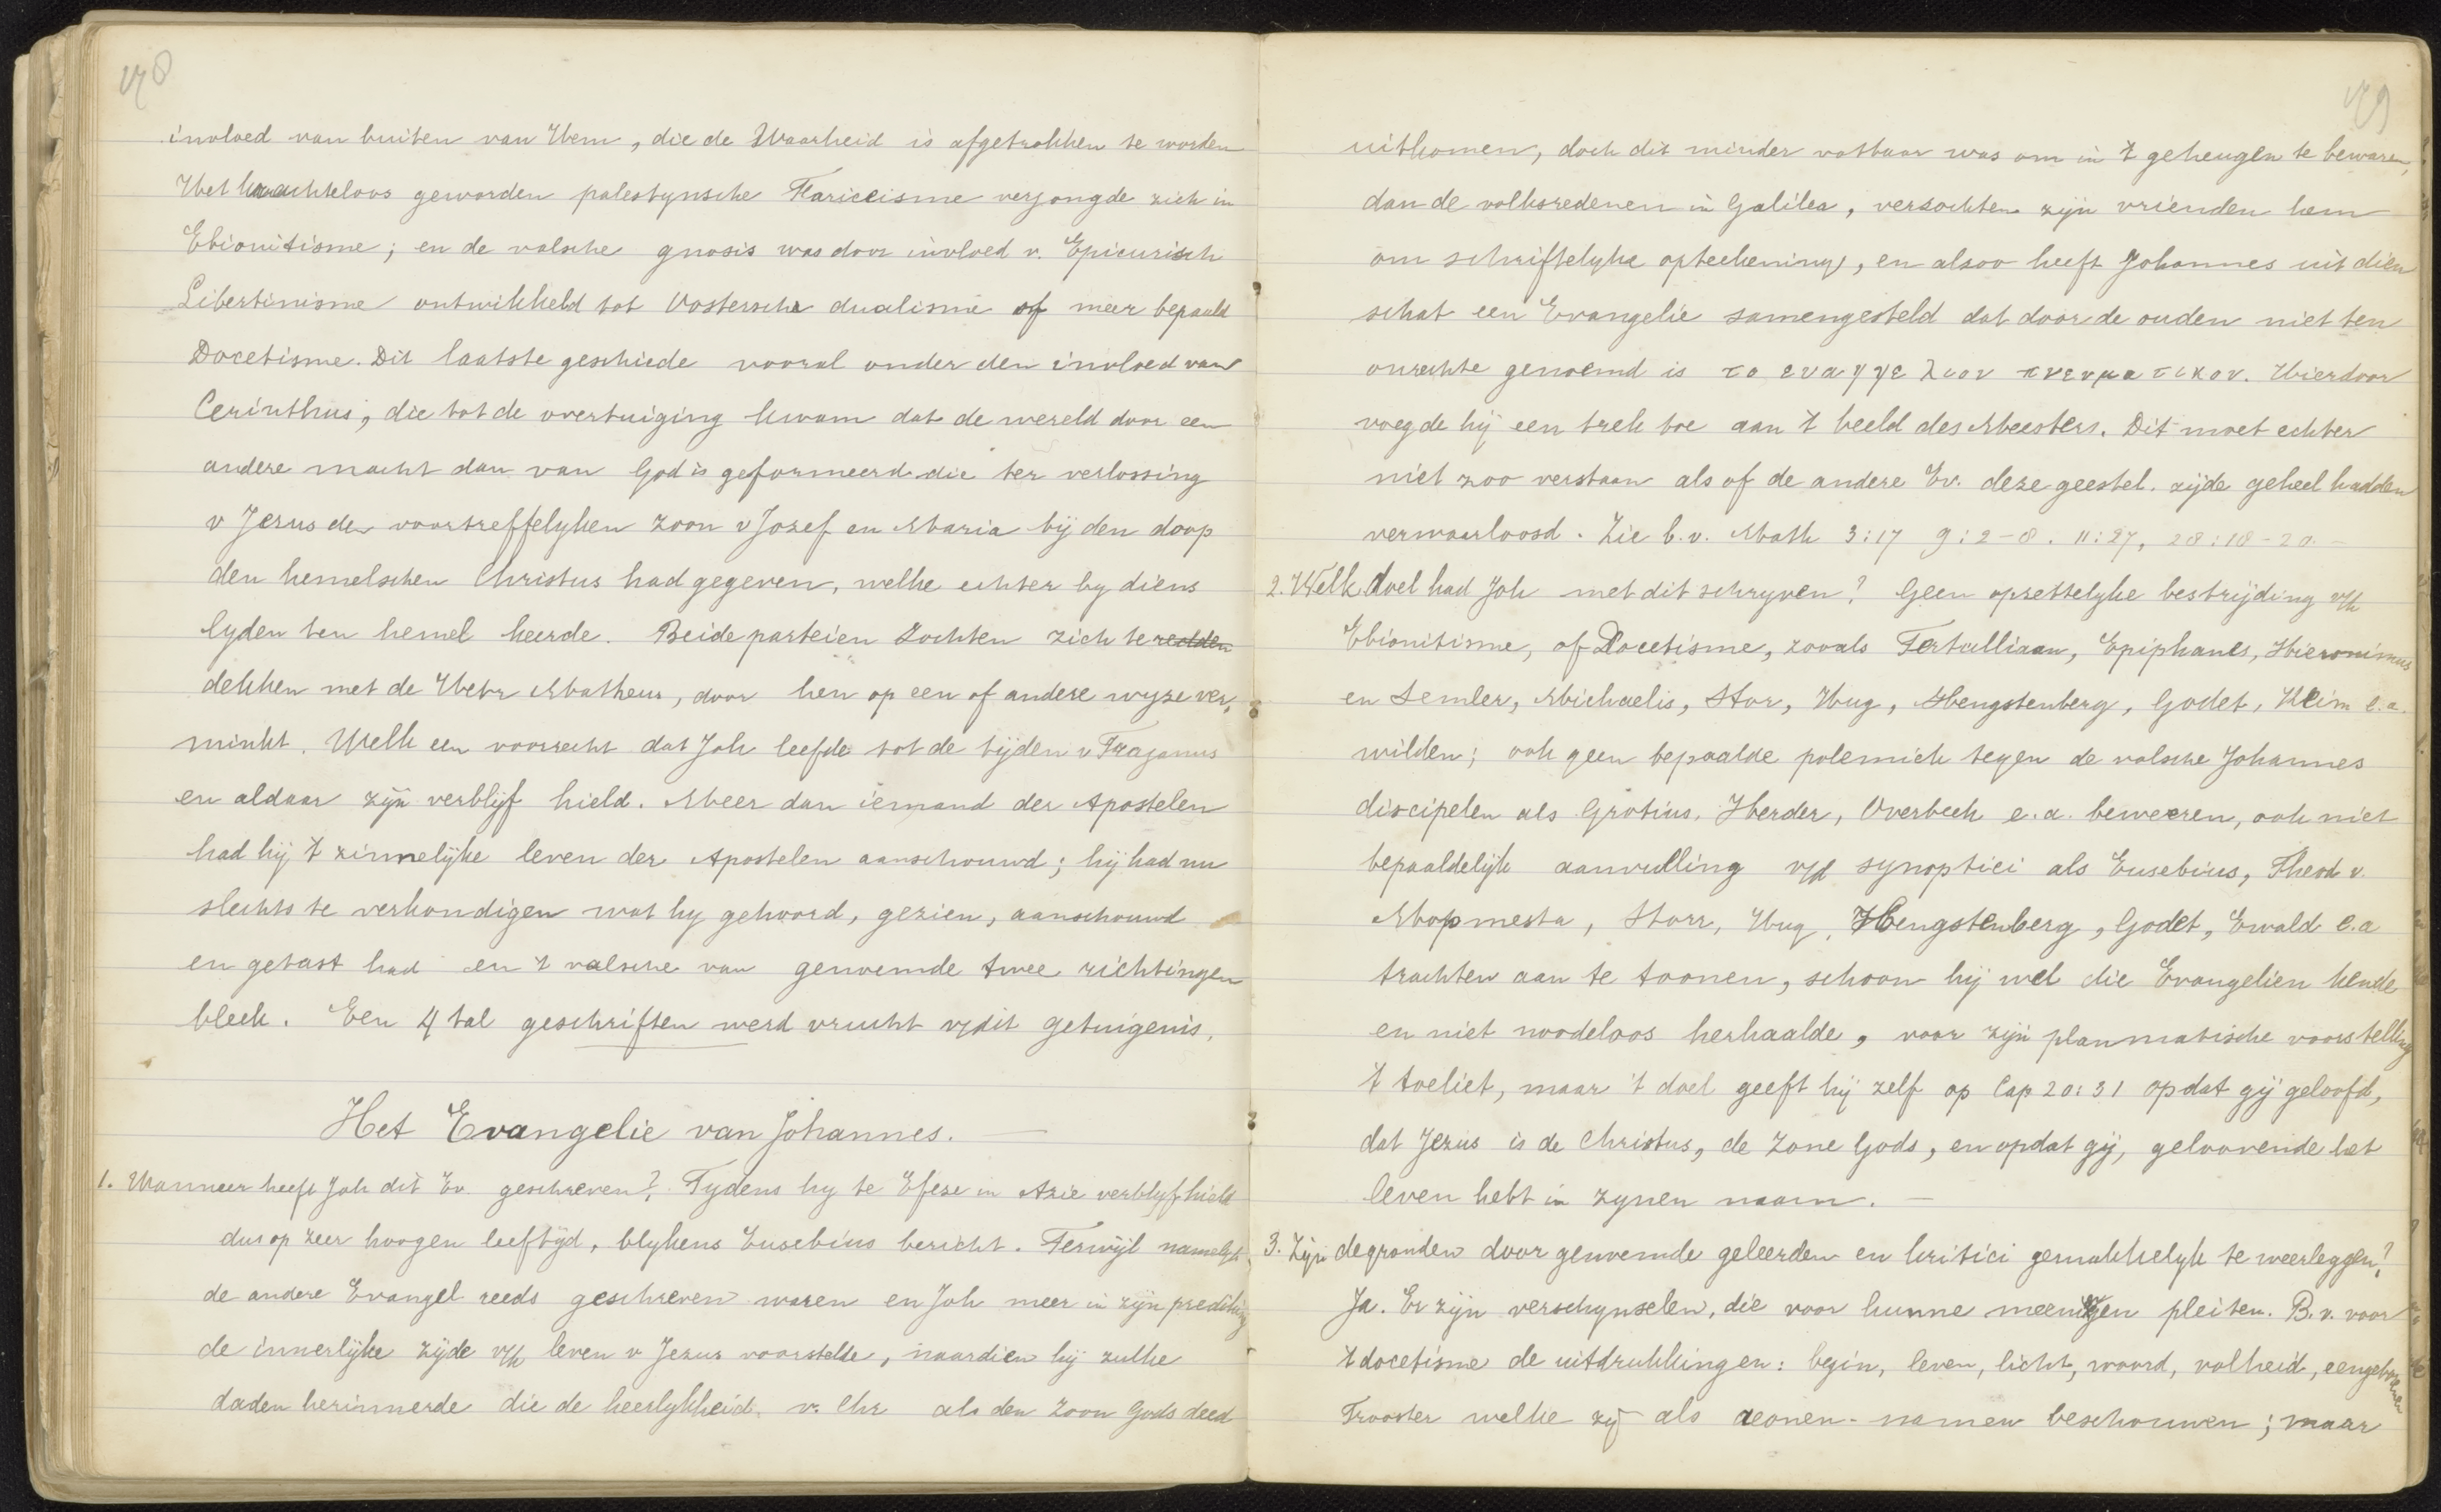 178
invloed van buiten van Hem, die de Waarheid is afgetrokken te worden
Het krachteloos geworden palestynsche Fariceisme verjongde zich in
Ebionitisme; en de valsche gnosis was door invloed v. Epicurisch
Libertinisme ontwikkeld tot Oostersche dualisme of meer bepaald
Docetisme. Dit laatste geschiede vooral onder den invloed van
Cerinthus, die tot de overtuiging kwam dat de wereld door een
andere macht dan van God is geformeerd die ter verlossing
v Jezus den voortreffelyken zoon v Jozef en Maria bij den doop
den hemelschen Christus had gegeven, welke echter by diens
lyden ten hemel keerde. Beide parteien zochten zich te redden
dekken met de Hebr Matheus, door hen op een of andere wyze ver,
minkt. Welk een voorrecht dat Joh leefde tot de tijden v Trajanus
en aldaar zijn verblijf hield. Meer dan iemand der Apostelen
had hij 't zinnelijke leven der Apostelen aanschouwd; hij had nu
slechts te verkondigen wat hy gehoord, gezien, aanschouwd
en getast had en 't valsche van genoemde twee richtingen
bleek. Een 4 tal geschriften werd vrucht v/dit getuigenis.
Het Evangelie van Johannes. —
1. Wanneer heeft Joh dit Ev. geschreven? Tydens hy te Efeze in Azie verblyf hield
dus op zeer hoogen leeftijd, blykens Eusebius bericht. Terwijl namelyk
de andere Evangel reeds geschreven waren en Joh meer in zijn prediking
de innerlijke zijde v/h leven v Jezus voorstelde, naardien hij zulke
daden herinnerde die de heerlykheid v. Chr als den Zoon Gods deed
179
uitkomen, doch dit minder vatbaar was om in 't geheugen te bewaren,
dan de volksredenen in Galilea, verzochten zijn vrienden hem
om schriftelyke opteekening, en alzoo heeft Johannes uit dien
schat een Evangelie samengesteld dat door de ouden niet ten
onrechte genoemd is το ευαγγελιον πνευματικον. Hierdoor
voegde hij een trek toe aan 't beeld des Meesters. Dit moet echter
niet zoo verstaan als of de andere Ev. deze geestel. zijde geheel hadden
verwaarloosd. Zie b.v. Math 3:17 9:2-8. 11:27, 28:18-20. —
2. Welk doel had Joh met dit schryven? Geen opzettelyke bestrijding v/h
Ebionitisme, of Docetisme, zooals Tertulliaan, Epiphanes, Hieronimus
en Semler, Michaelis, Stor, Hug, Hengstenberg, Godet, Keim e.a.
wilden; ook geen bepaalde polemiek tegen de valsche Johannes
discipelen als Grotius, Herder, Overbeek e.a. beweeren, ook niet
bepaaldelijk aanvulling v/d synoptici als Eusebius, Theod v.
Mopmesta, Storr, Hug, Hengstenberg, Godet, Ewald e.a
trachten aan te toonen, schoon hij wel die Evangelien kende
en niet noodeloos herhaalde, voor zijn planmatische voorstelling
't toeliet, maar 't doel geeft hij zelf op Cap 20:31 opdat gij geloofd,
dat Jezus is de Christus, de Zone Gods, en opdat gij, geloovende het
leven hebt in zynen naam. —
3. Zijn de gronden door genoemde geleerden en kritici gemakkelyk te weerleggen?
Ja. Er zijn verschynselen, die voor hunne meeningen pleiten. B.v. voor
't docetisme de uitdrukkingen: begin, leven, licht, woord, volheid, eengeborenen
Trooster welke zij als aeonen-namen beschouwen; maar